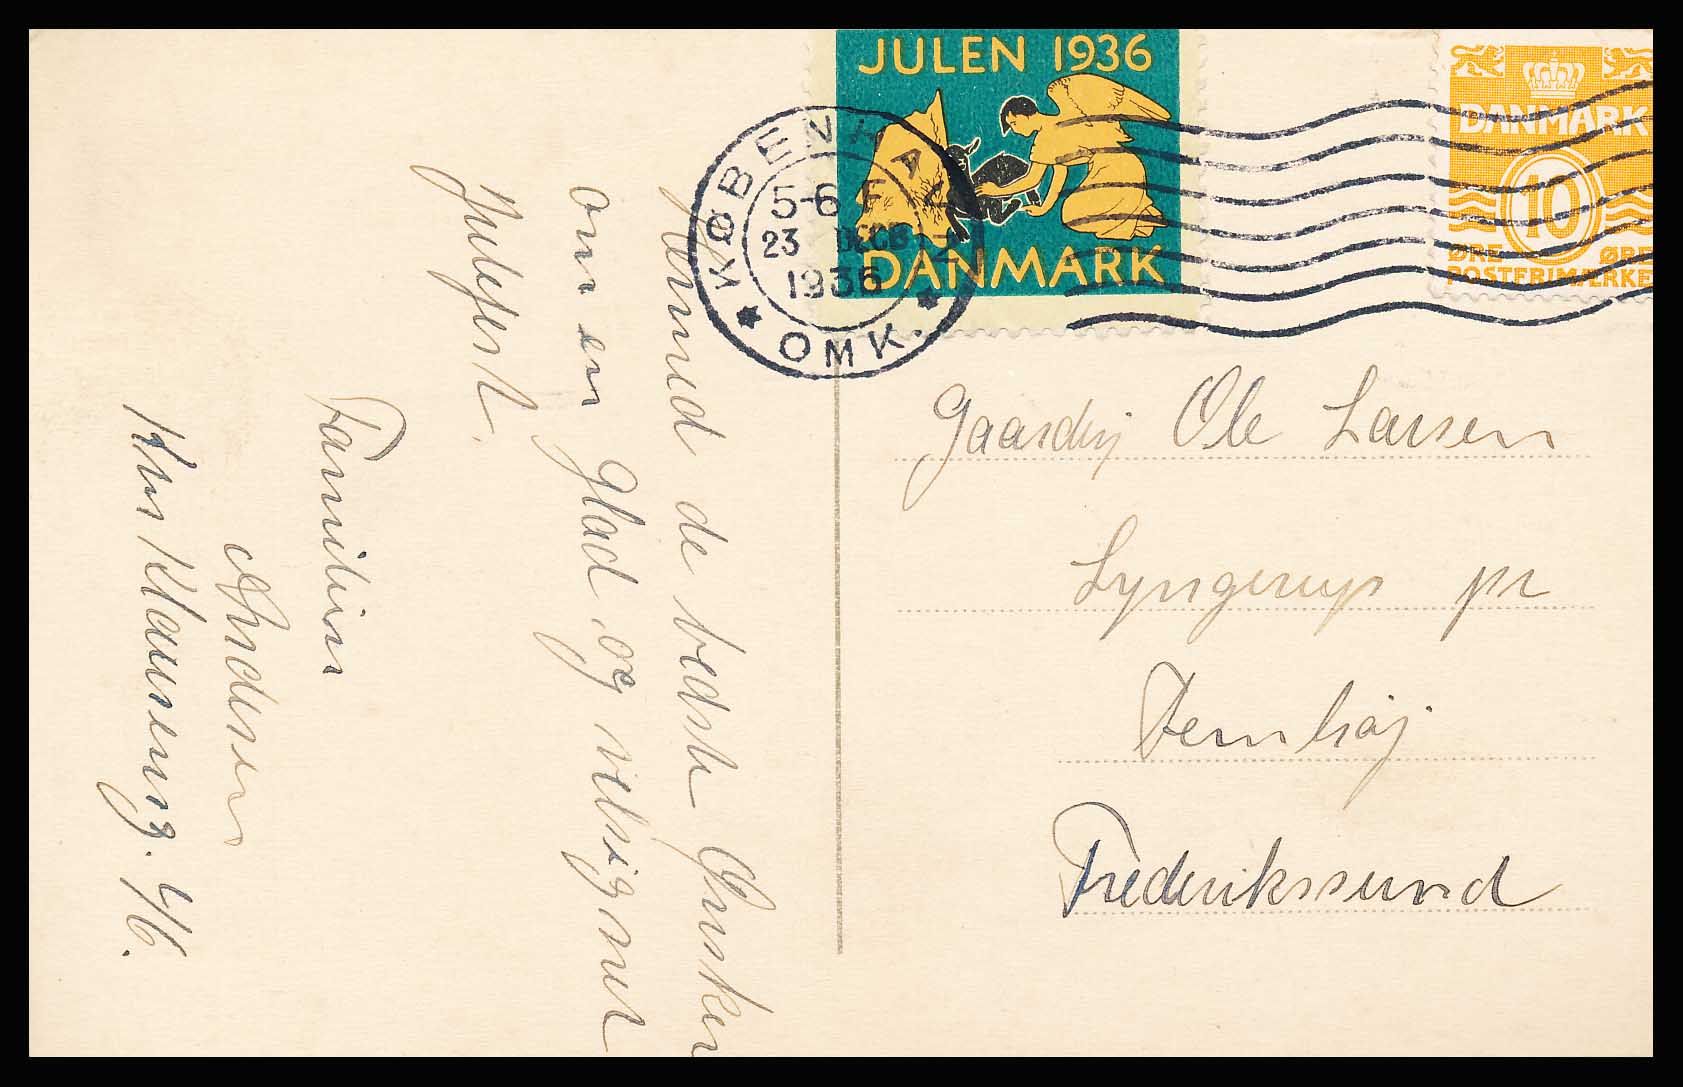 JULEN 1936
DANMARK
DANMARK
10
ØRE ØRE
POSTFRIMÆRKE
KØBENHAVN
5-6 F
23 DECB
1936
OMK.
Hermed de bedste Ønsker
om en glad og velsignet
Julefest.
Familien
Andersen
Gaardej Ole Larsen
Lyngerup pr
Jernhøj
Frederikssund